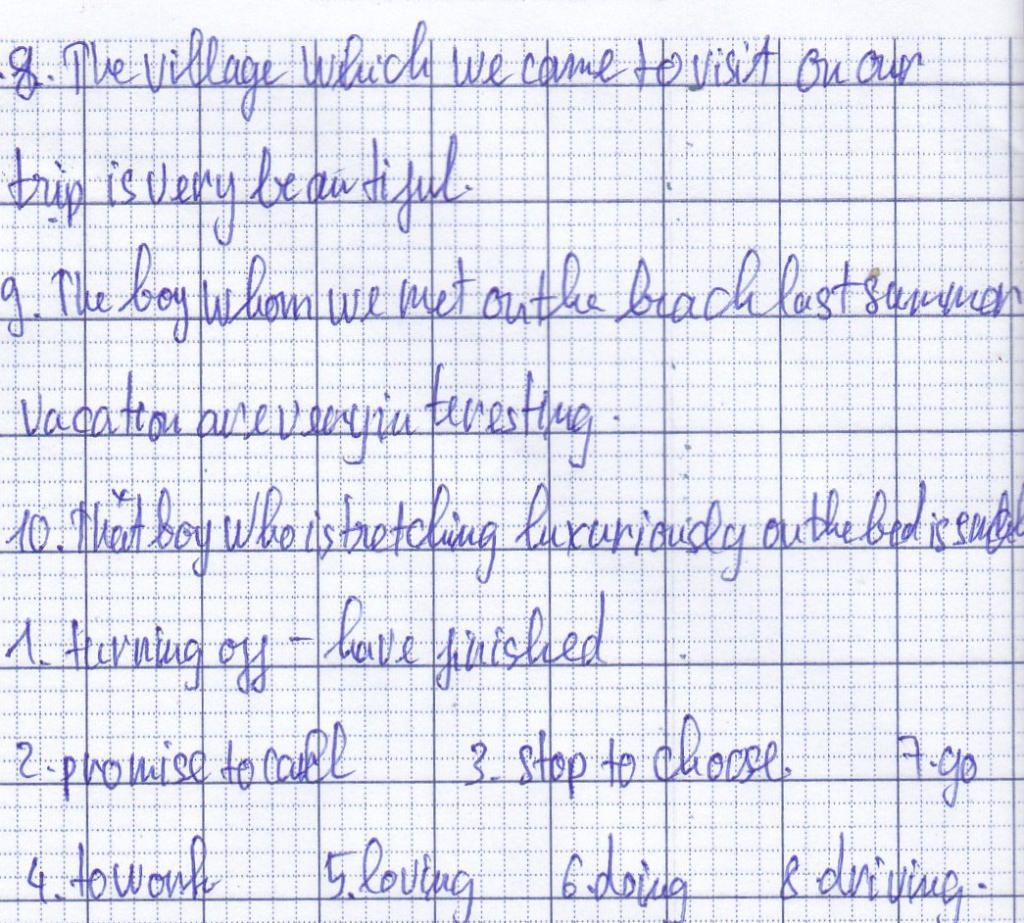 8. The village which we came to visit on our
trip is very beautiful.
9. The boy whom we met on the beach last summer
vacation are very interesting.
10. That boy who is stretching luxuriously on the bed is
1. turning off - have finished
2. promise to call 3. stop to choose. 7. go
4. to work 5. loving 6. doing 8 driving.